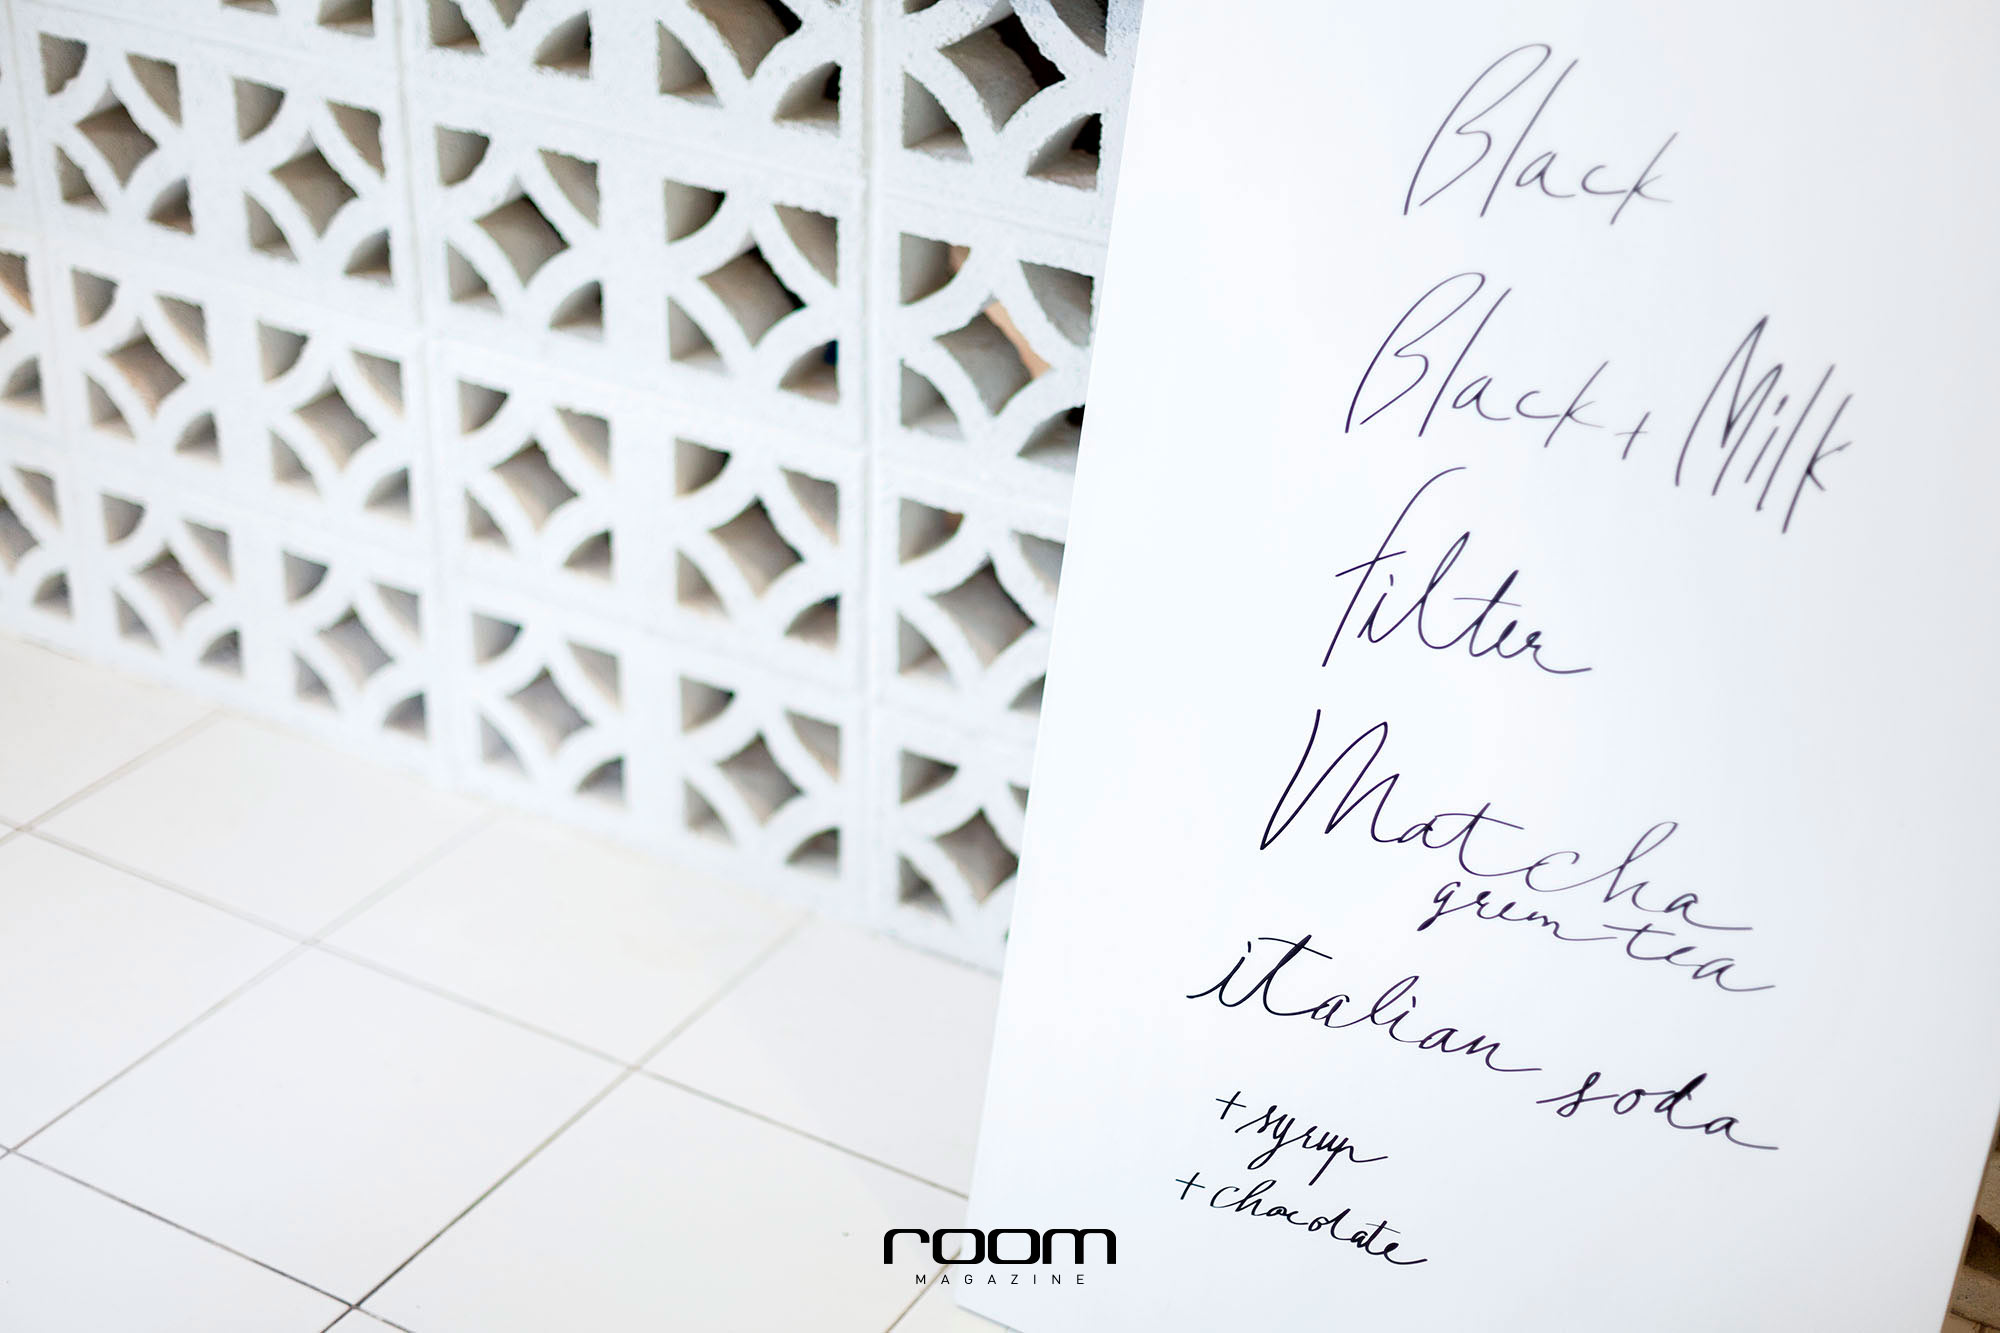 Black
Black + Milk
Filter
Matcha
green tea
italian soda
+ syrup
+ chocolate
room
MAGAZINE